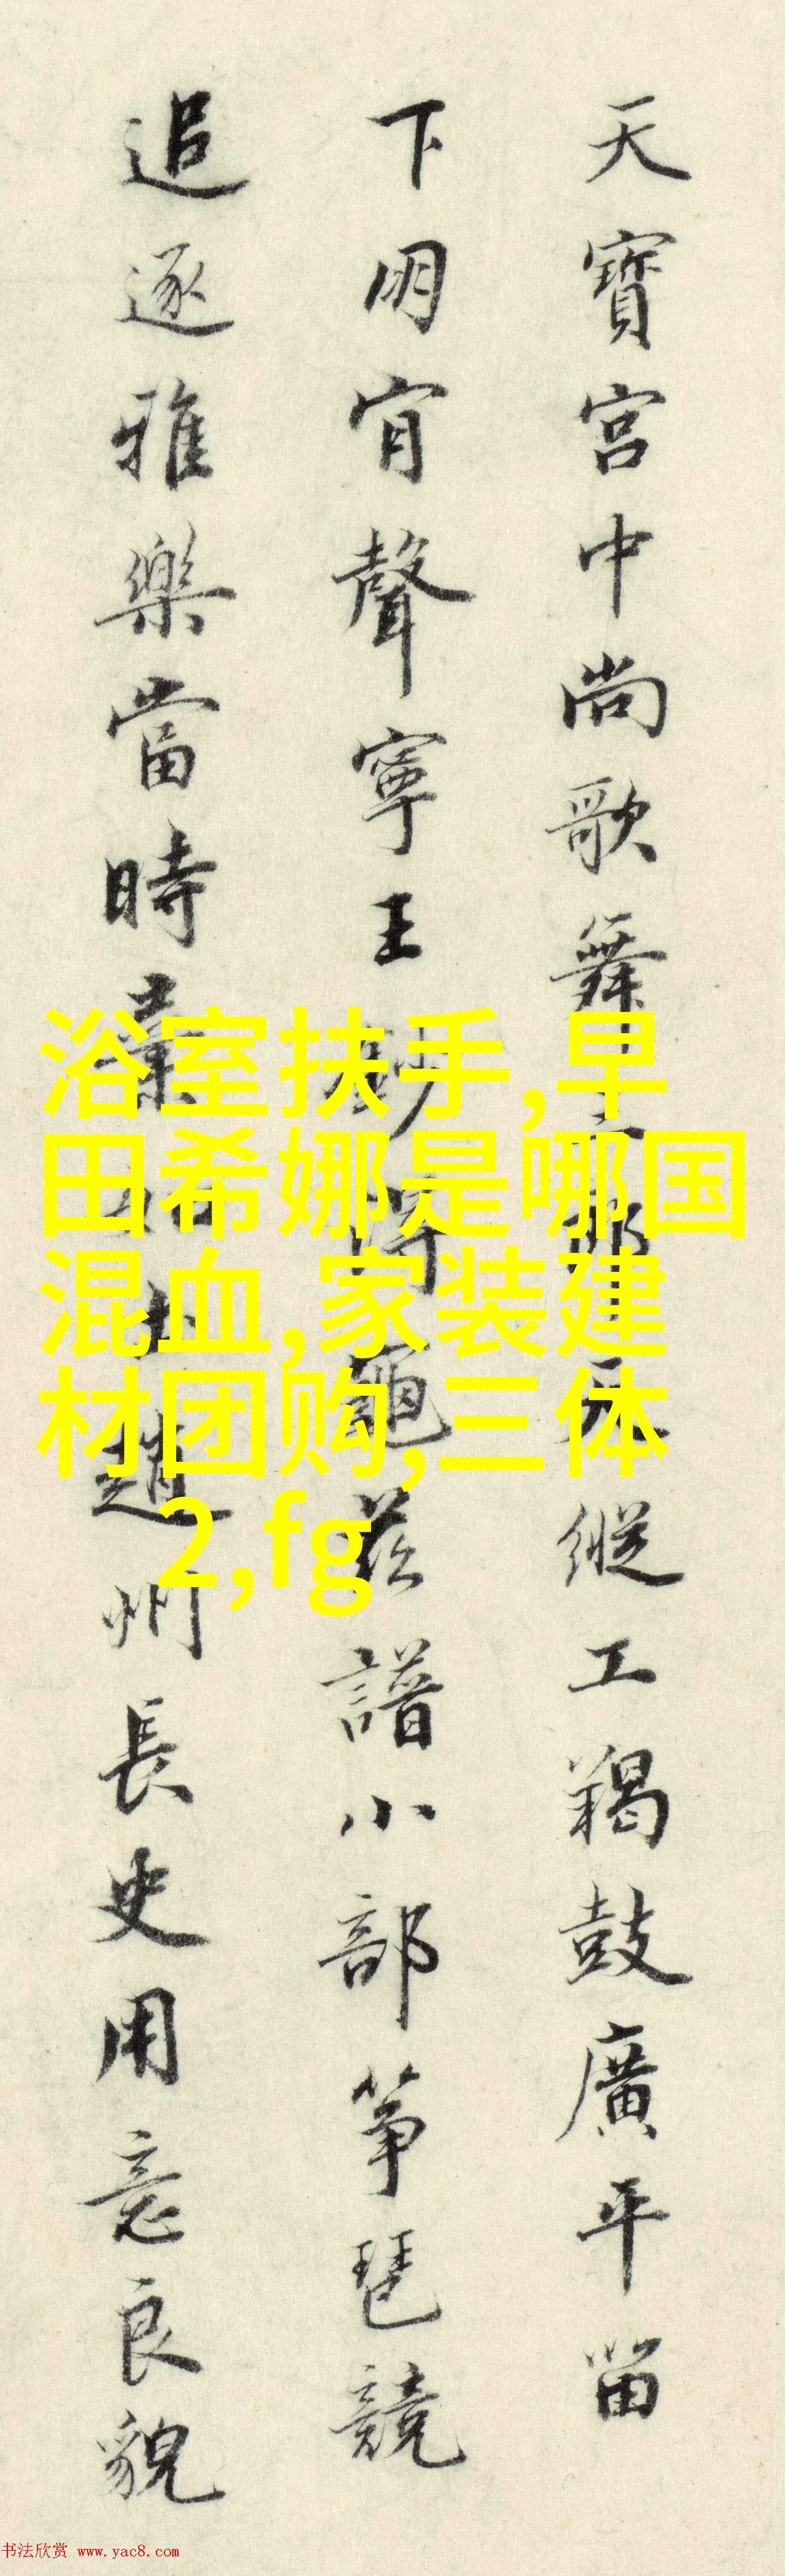 天寶宮中尚歌舞
縱工羯鼓廣平留
下朙宵聲寧王
龜茲譜小部箏琶競
追逐雅樂當時棄
趙州長史用意良貌
浴室扶手,早
田希娜是哪国
混血,家装建
材团购,三体
2,fg
书法欣赏 www.yac8.com